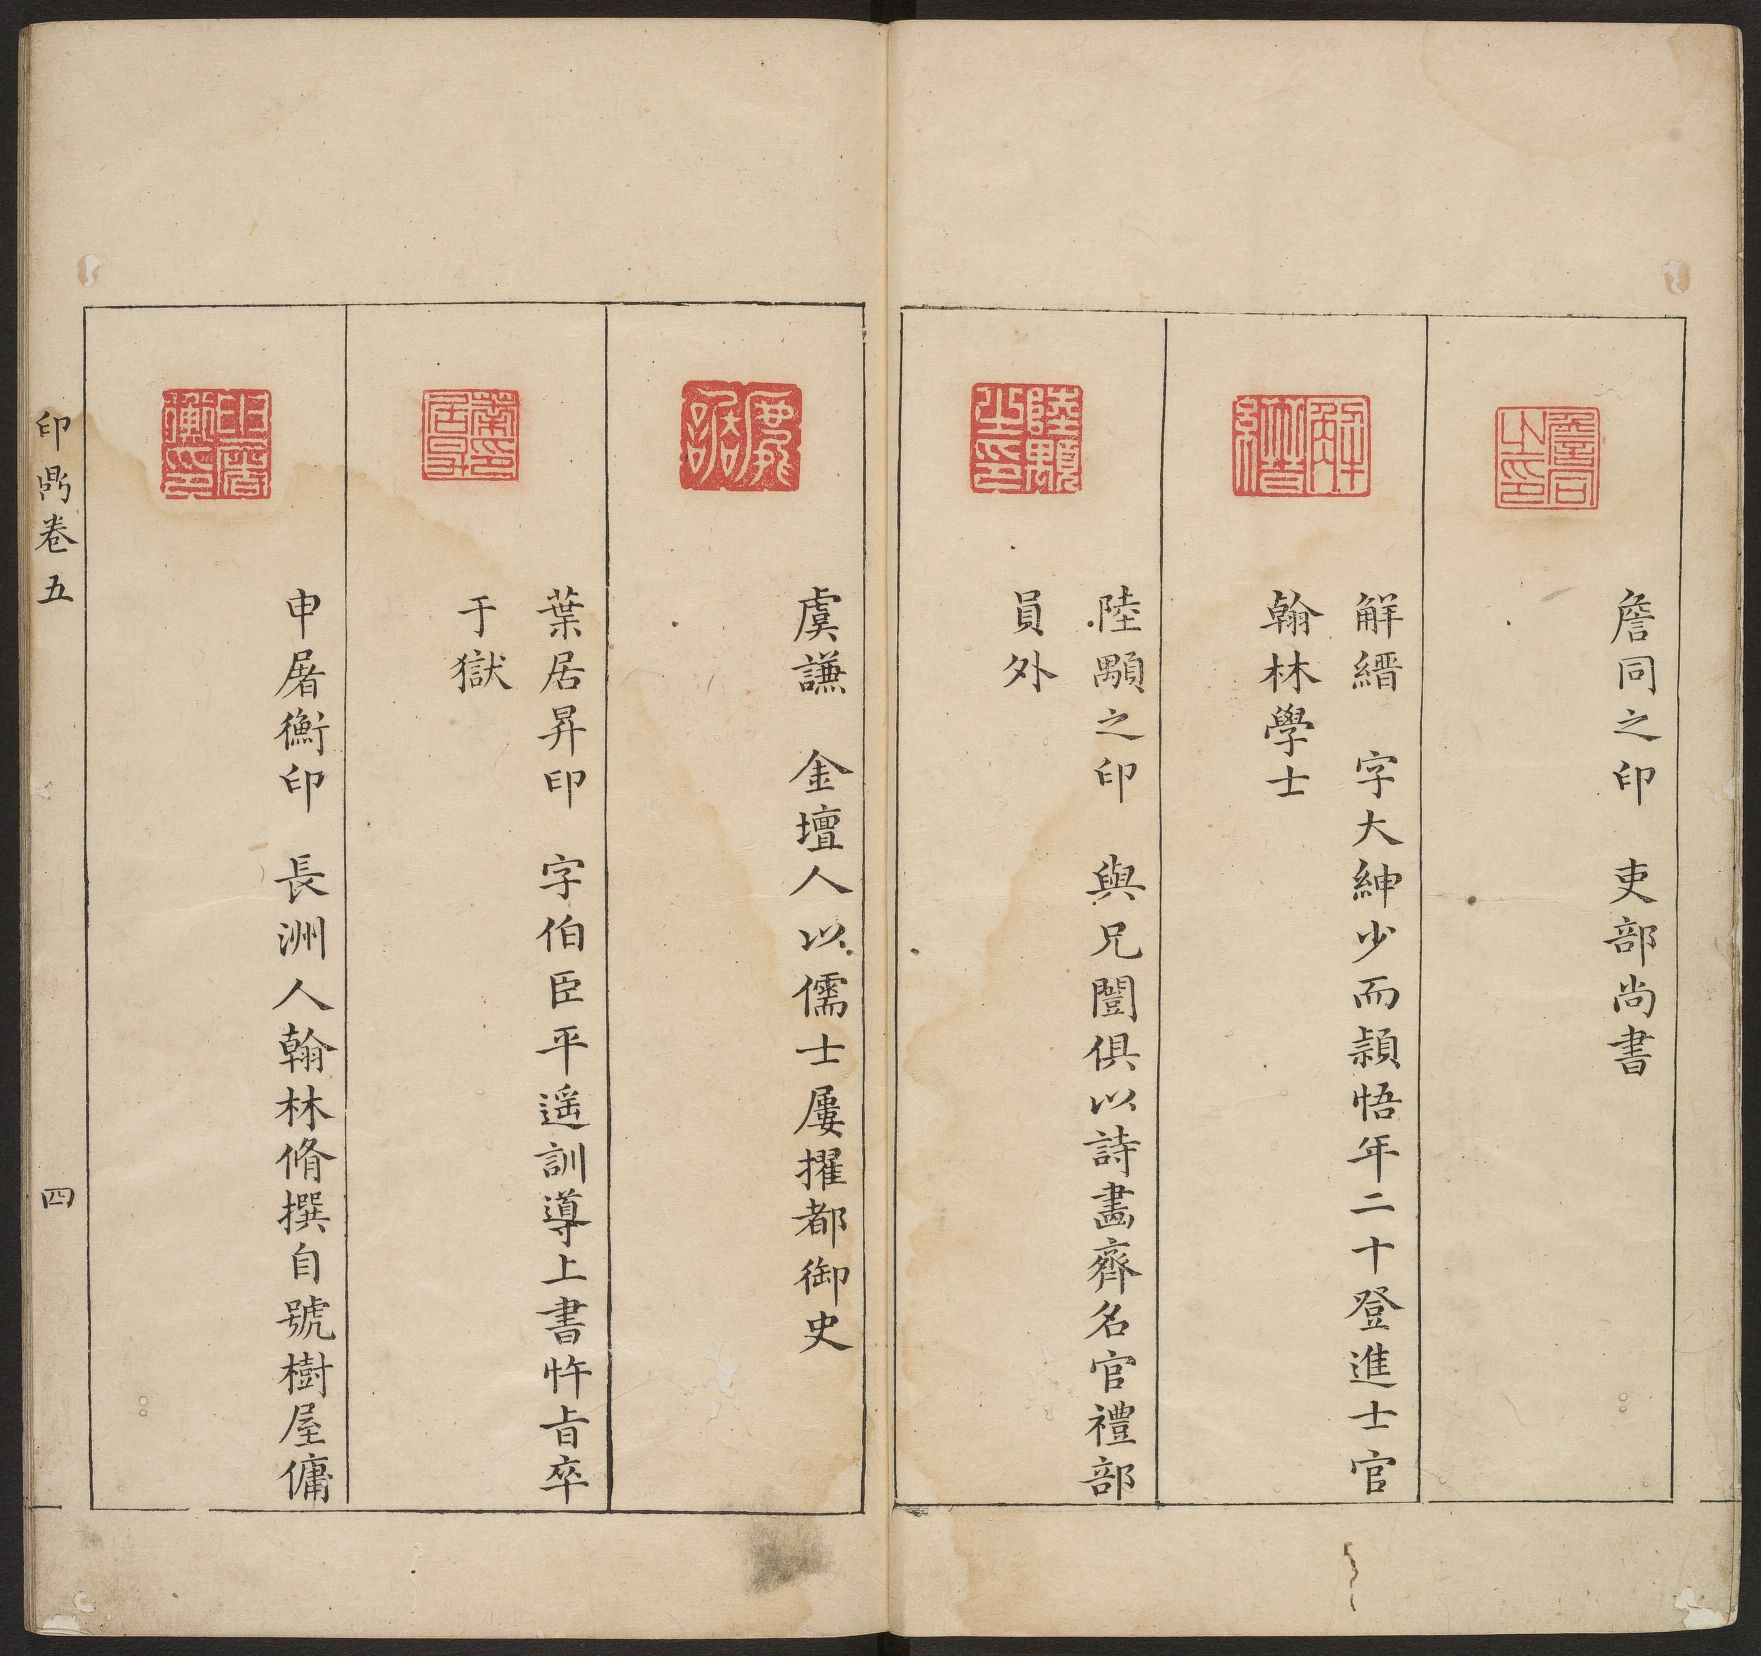 詹同之印　吏部尚書
解縉　字大紳少而頴悟年二十登進士官
翰林學士
陸顒之印　與兄闓俱以詩畫齊名官禮部
員外
虞謙　金壇人以儒士屢擢都御史
葉居昇印　字伯臣平遥訓導上書忤㫖卒
于獄
申屠衡印　長洲人翰林脩撰自號樹屋傭
印鼎卷五
四
詹同之印
解縉
陸顒之印
虞謙
葉居昇印
申屠衡印